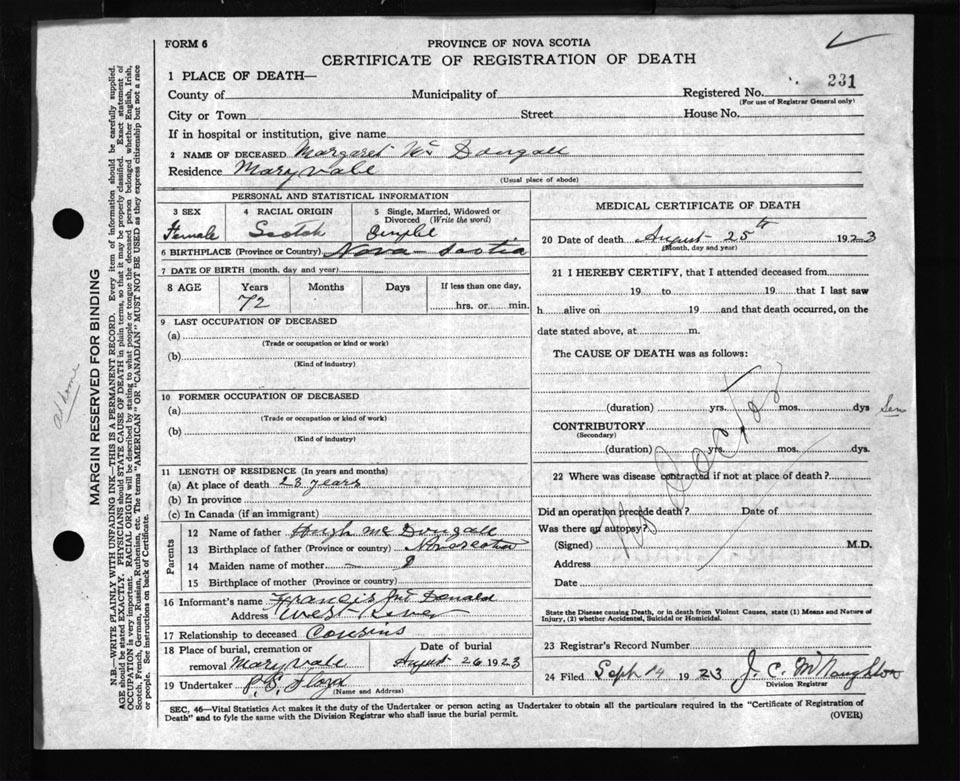 FORM 6
PROVINCE OF NOVA SCOTIA
CERTIFICATE OF REGISTRATION OF DEATH
231
1 PLACE OF DEATH—
County of Municipality of Registered No.
(For use of Registrar General only)
City or Town Street House No.
If in hospital or institution, give name
2 NAME OF DECEASED Margaret Mc Dougall
Residence Maryvale
(Usual place of abode)
PERSONAL AND STATISTICAL INFORMATION
3 SEX 4 RACIAL ORIGIN 5 Single, Married, Widowed or Divorced (Write the word)
Female Scotch Single
6 BIRTHPLACE (Province or Country) Nova Scotia
7 DATE OF BIRTH (month, day and year)
8 AGE Years Months Days If less than one day,
72 hrs. or min.
9 LAST OCCUPATION OF DECEASED
(a)
(Trade or occupation or kind of work)
(b)
(Kind of industry)
10 FORMER OCCUPATION OF DECEASED
(a)
(Trade or occupation or kind of work)
(b)
(Kind of industry)
11 LENGTH OF RESIDENCE (In years and months)
(a) At place of death 23 years
(b) In province
(c) In Canada (if an immigrant)
Parents
12 Name of father Hugh Mc Dougall
13 Birthplace of father (Province or country) Nova scotia
14 Maiden name of mother — ?
15 Birthplace of mother (Province or country)
16 Informant's name Francis Mc Donald
Address West River
17 Relationship to deceased Cousins
18 Place of burial, cremation or removal Maryvale
Date of burial
August 26 1923
19 Undertaker P. S. Floyd
(Name and Address)
MEDICAL CERTIFICATE OF DEATH
20 Date of death August 25th 1923
(Month, day and year)
21 I HEREBY CERTIFY, that I attended deceased from
19 to 19 that I last saw
h alive on 19 and that death occurred, on the
date stated above, at m.
The CAUSE OF DEATH was as follows:
No Doctor
(duration) yrs. mos. dys
Sen
CONTRIBUTORY
(Secondary)
(duration) yrs. mos. dys.
22 Where was disease contracted if not at place of death?
Did an operation precede death? Date of
Was there an autopsy?
(Signed) M.D.
Address
Date
State the Disease causing Death, or in death from Violent Causes, state (1) Means and Nature of
Injury, (2) whether Accidental, Suicidal or Homicidal.
23 Registrar's Record Number
24 Filed Sept 14 1923 J. C. McNaughton
Division Registrar
SEC. 46—Vital Statistics Act makes it the duty of the Undertaker or person acting as Undertaker to obtain all the particulars required in the "Certificate of Registration of
Death" and to fyle the same with the Division Registrar who shall issue the burial permit.
(OVER)
MARGIN RESERVED FOR BINDING
N.B.—WRITE PLAINLY WITH UNFADING INK—THIS IS A PERMANENT RECORD. Every item of information should be carefully supplied.
AGE should be stated EXACTLY. PHYSICIANS should STATE CAUSE OF DEATH in plain terms, so that it may be properly classified. Exact statement of
OCCUPATION is very important. RACIAL ORIGIN will be described by stating to what people or tongue the deceased person belonged whether English, Irish,
Scotch, French, German, Russian, Ruthenian, etc. The terms "AMERICAN" or "CANADIAN" MUST NOT BE USED as they express citizenship but not a race
or people. See instructions on back of Certificate.
at home